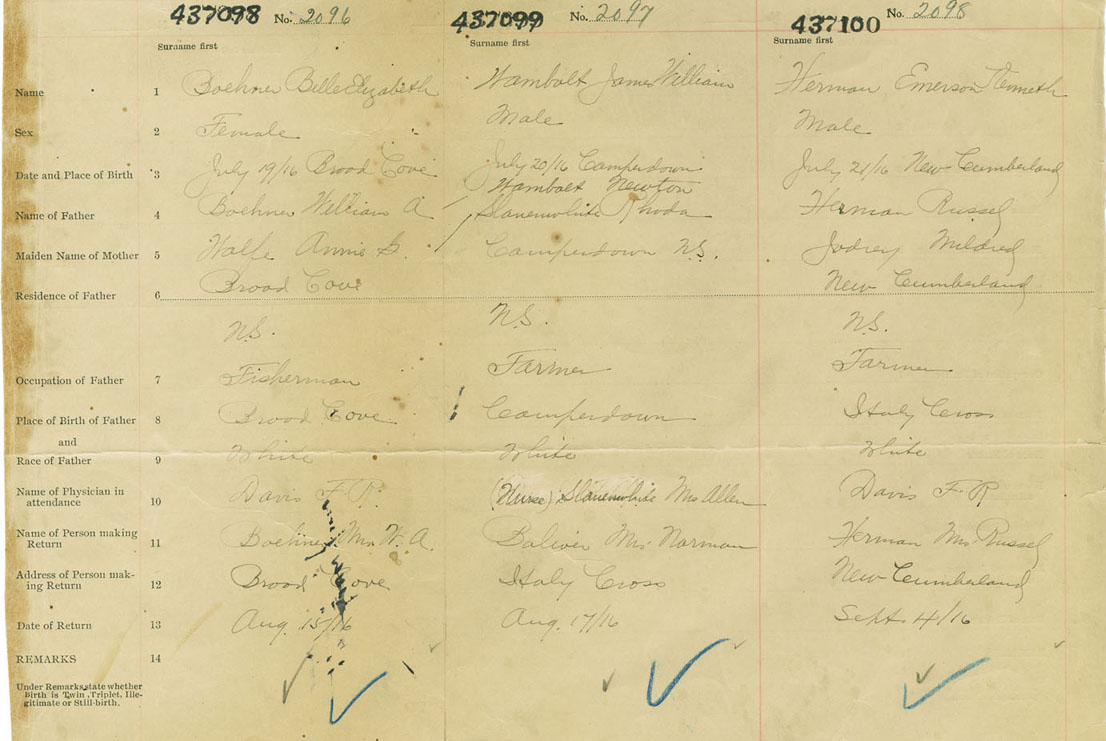 437098 No. 2096 437099 No. 2097 437100 No. 2098
Surname first Surname first Surname first
Name 1 Boehner Belle Elizabeth Wambolt James William Herman Emerson Kenneth
Sex 2 Female Male Male
Date and Place of Birth 3 July 19/16 Broad Cove July 20/16 Camperdown July 21/16 New Cumberland
Wambolt Newton
Name of Father 4 Boehner William A Slauenwhite Rhoda Herman Russel
Maiden Name of Mother 5 Wolfe Annie S. Camperdown N.S. Jodrey Mildred
Residence of Father 6 Broad Cove New Cumberland
N.S. N.S. N.S.
Occupation of Father 7 Fisherman Farmer Farmer
Place of Birth of Father 8 Broad Cove Camperdown Italy Cross
and
Race of Father 9 White White White
Name of Physician in
attendance 10 Davis F. R. (Nurse) Slauenwhite Mrs Allen Davis F. R
Name of Person making
Return 11 Boehner Mrs W. A. Boliver Mrs Norman Herman Mrs Russel
Address of Person mak-
ing Return 12 Broad Cove Italy Cross New Cumberland
Date of Return 13 Aug. 15/16 Aug. 17/16 Sept. 4/16
REMARKS 14
Under Remarks state whether
Birth is Twin, Triplet, Ille-
gitimate or Still-birth.